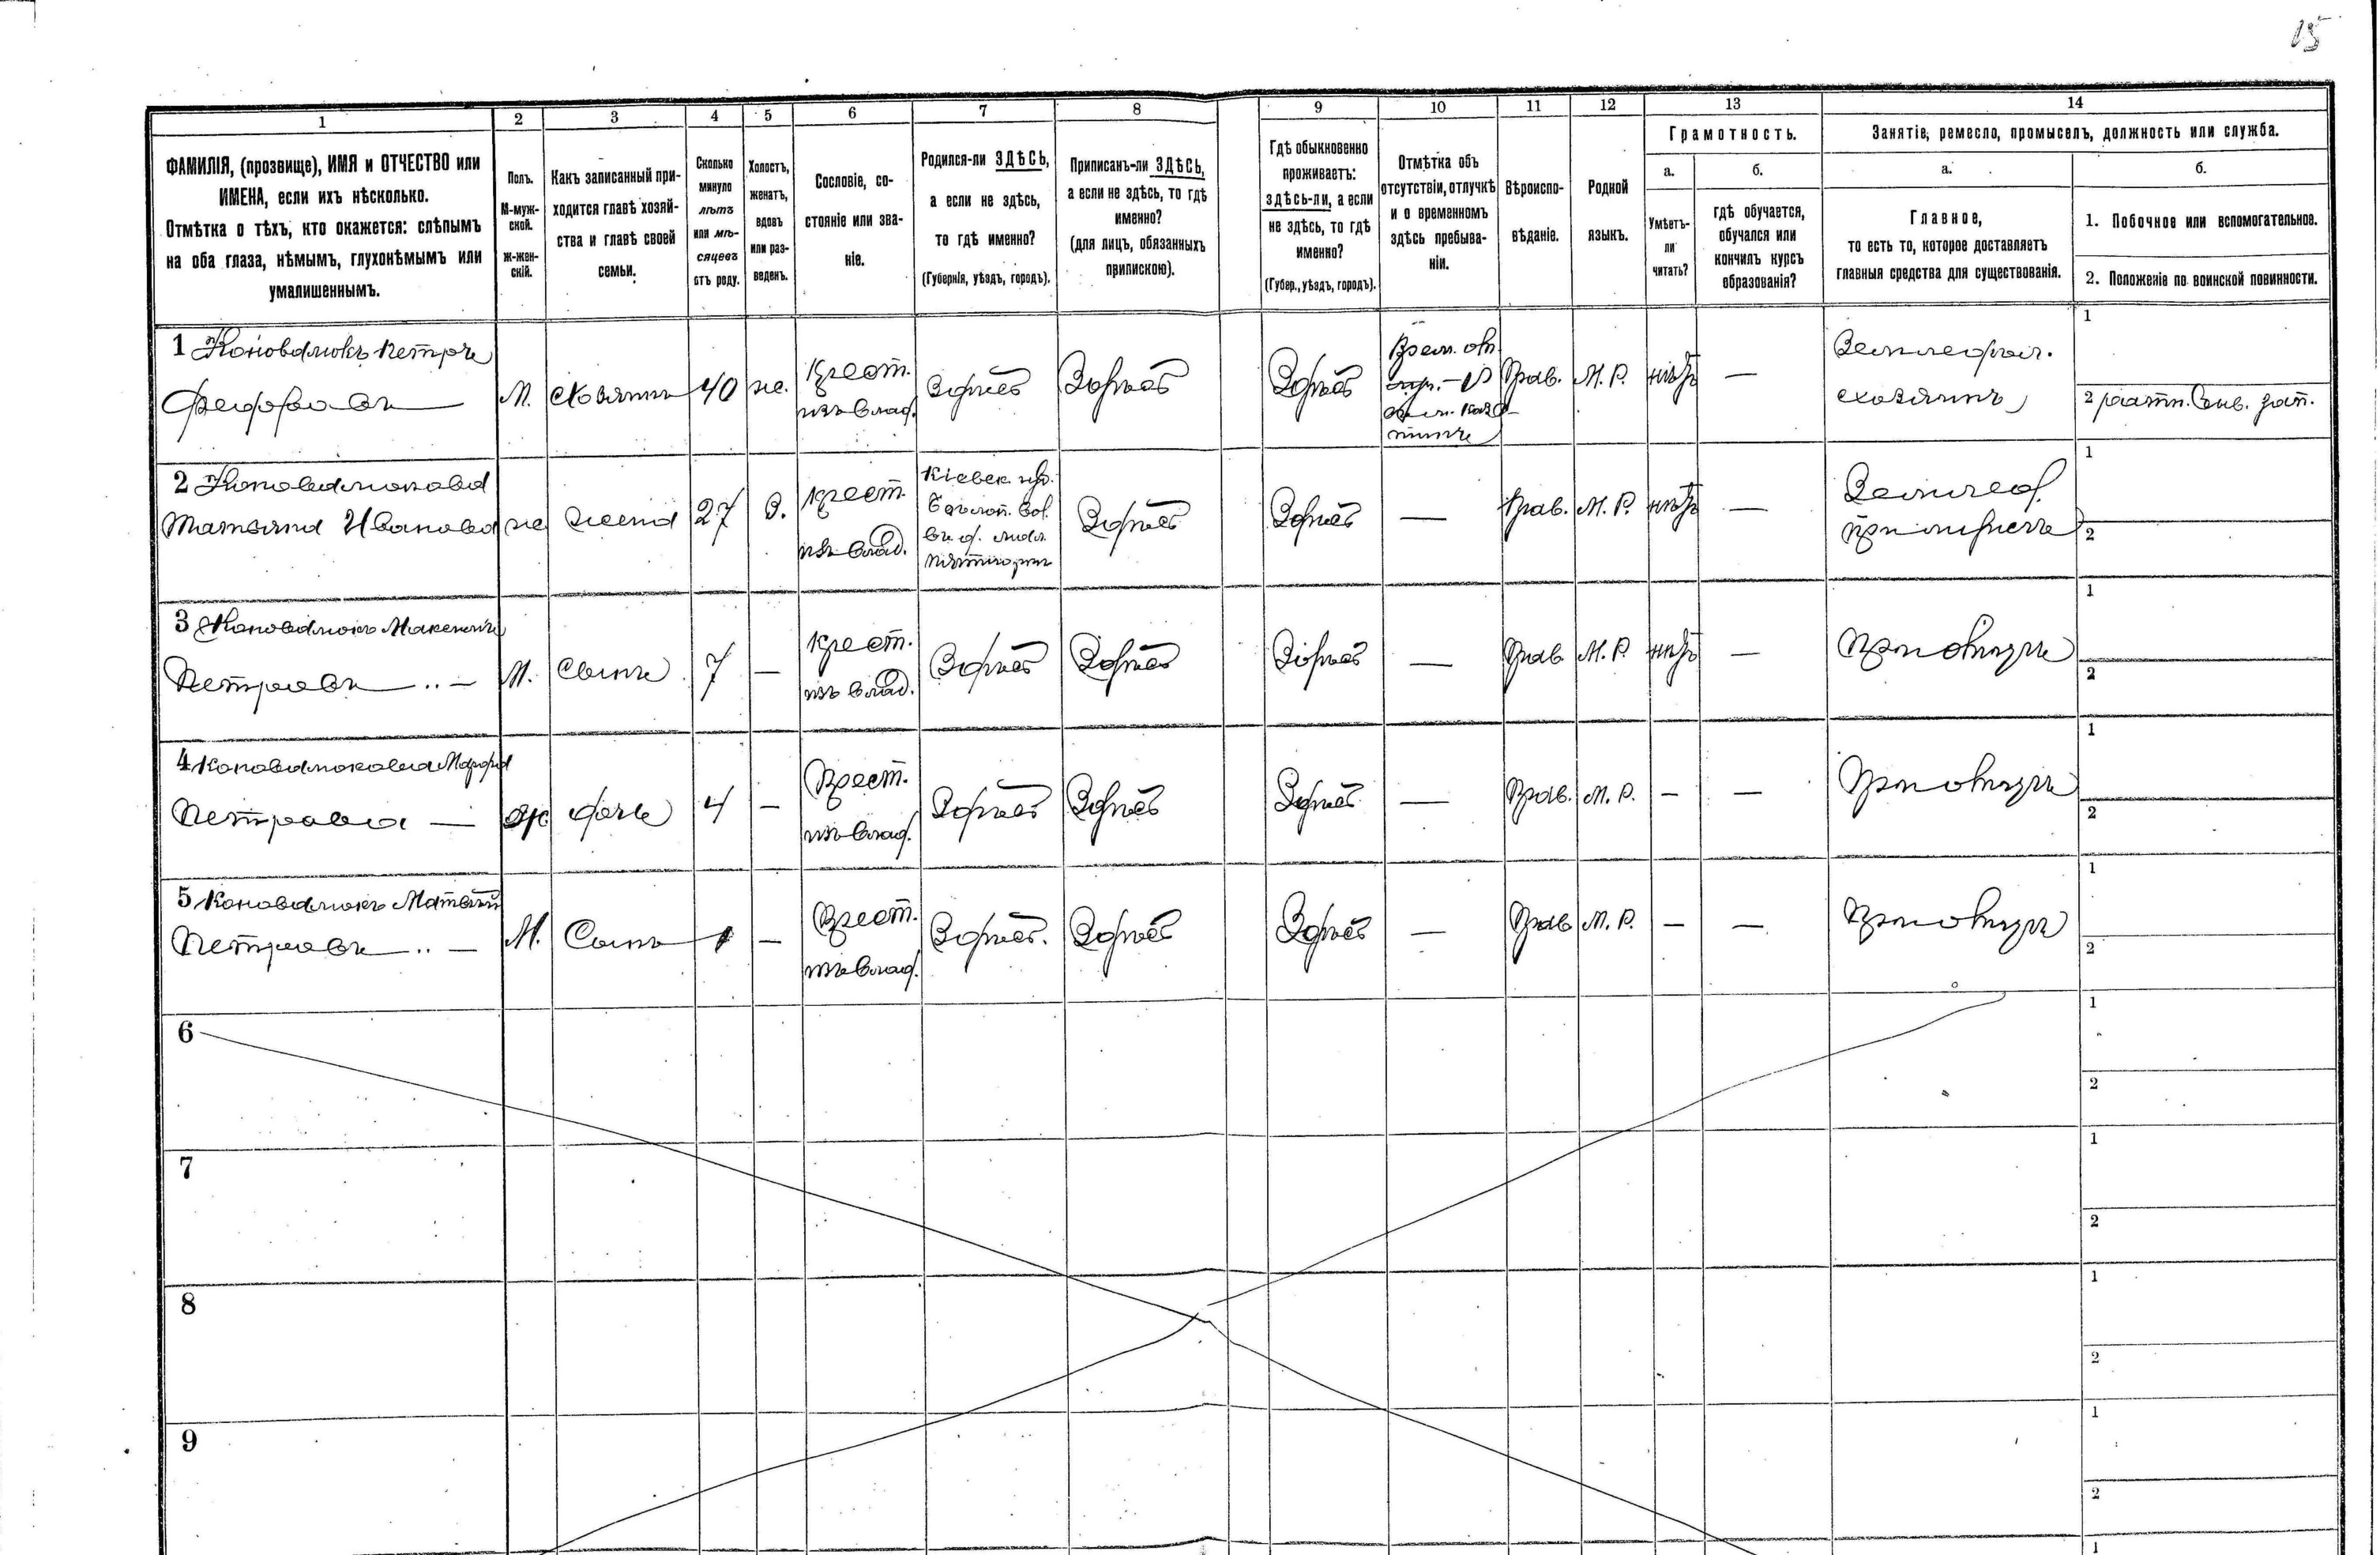 15
1 2 3 4 5 6 7 8 9 10 11 12 13 14
ФАМИЛІЯ, (прозвище), ИМЯ и ОТЧЕСТВО или
ИМЕНА, если ихъ нѣсколько.
Отмѣтка о тѣхъ, кто окажется: слѣпымъ
на оба глаза, нѣмымъ, глухонѣмымъ или
умалишеннымъ.
Полъ.
М-муж-
ской.
Ж-жен-
скій.
Какъ записанный при-
ходится главѣ хозяй-
ства и главѣ своей
семьи.
Сколько
минуло
лѣтъ
или мѣ-
сяцевъ
отъ роду.
Холостъ,
женатъ,
вдовъ
или раз-
веденъ.
Сословіе, со-
стояніе или зва-
ніе.
Родился-ли ЗДѢСЬ,
а если не здѣсь,
то гдѣ именно?
(Губернія, уѣздъ, городъ).
Приписанъ-ли ЗДѢСЬ,
а если не здѣсь, то гдѣ
именно?
(для лицъ, обязанныхъ
припискою).
Гдѣ обыкновенно
проживаетъ:
здѣсь-ли, а если
не здѣсь, то гдѣ
именно?
(Губер., уѣздъ, городъ).
Отмѣтка объ
отсутствіи, отлучкѣ
и о временномъ
здѣсь пребыва-
ніи.
Вѣроиспо-
вѣданіе.
Родной
языкъ.
Грамотность.
а.
Умѣетъ-
ли
читать?
б.
гдѣ обучается,
обучался или
кончилъ курсъ
образованія?
Занятіе, ремесло, промыселъ, должность или служба.
а.
Главное,
то есть то, которое доставляетъ
главныя средства для существованія.
б.
1. Побочное или вспомогательное.
2. Положеніе по воинской повинности.
1 Коновалюкъ Петръ
Федоровъ
М. хозяинъ 40 ж.
крест.
изъ влад.
Здѣсь Здѣсь Здѣсь
Прав. М. Р. нѣтъ —
Земледѣл.
хозяинъ
1
2 ратн.
2 Коновалюкова
Татьяна Иванова
ж жена 27 З.
крест.
изъ влад.
Кіевск. губ.
Здѣсь Здѣсь —
Прав. М. Р. нѣтъ —
Земледѣл.
при мужѣ
1
2
3 Коновалюкъ Максимъ
Петровъ —
М. Сынъ 7 —
крест.
изъ влад.
Здѣсь Здѣсь Здѣсь —
Прав. М. Р. нѣтъ —
При отцѣ
1
2
4 Коновалюкова
Петрова —
ж дочь 4 —
Крест.
изъ влад.
Здѣсь Здѣсь Здѣсь —
Прав. М. Р. — —
При отцѣ
1
2
5 Коновалюкъ Матвѣй
Петровъ —
М. Сынъ 1 —
Крест.
изъ влад.
Здѣсь Здѣсь Здѣсь —
Прав М. Р. — —
При отцѣ
1
2
6
1
2
7
1
2
8
1
2
9
1
2
1